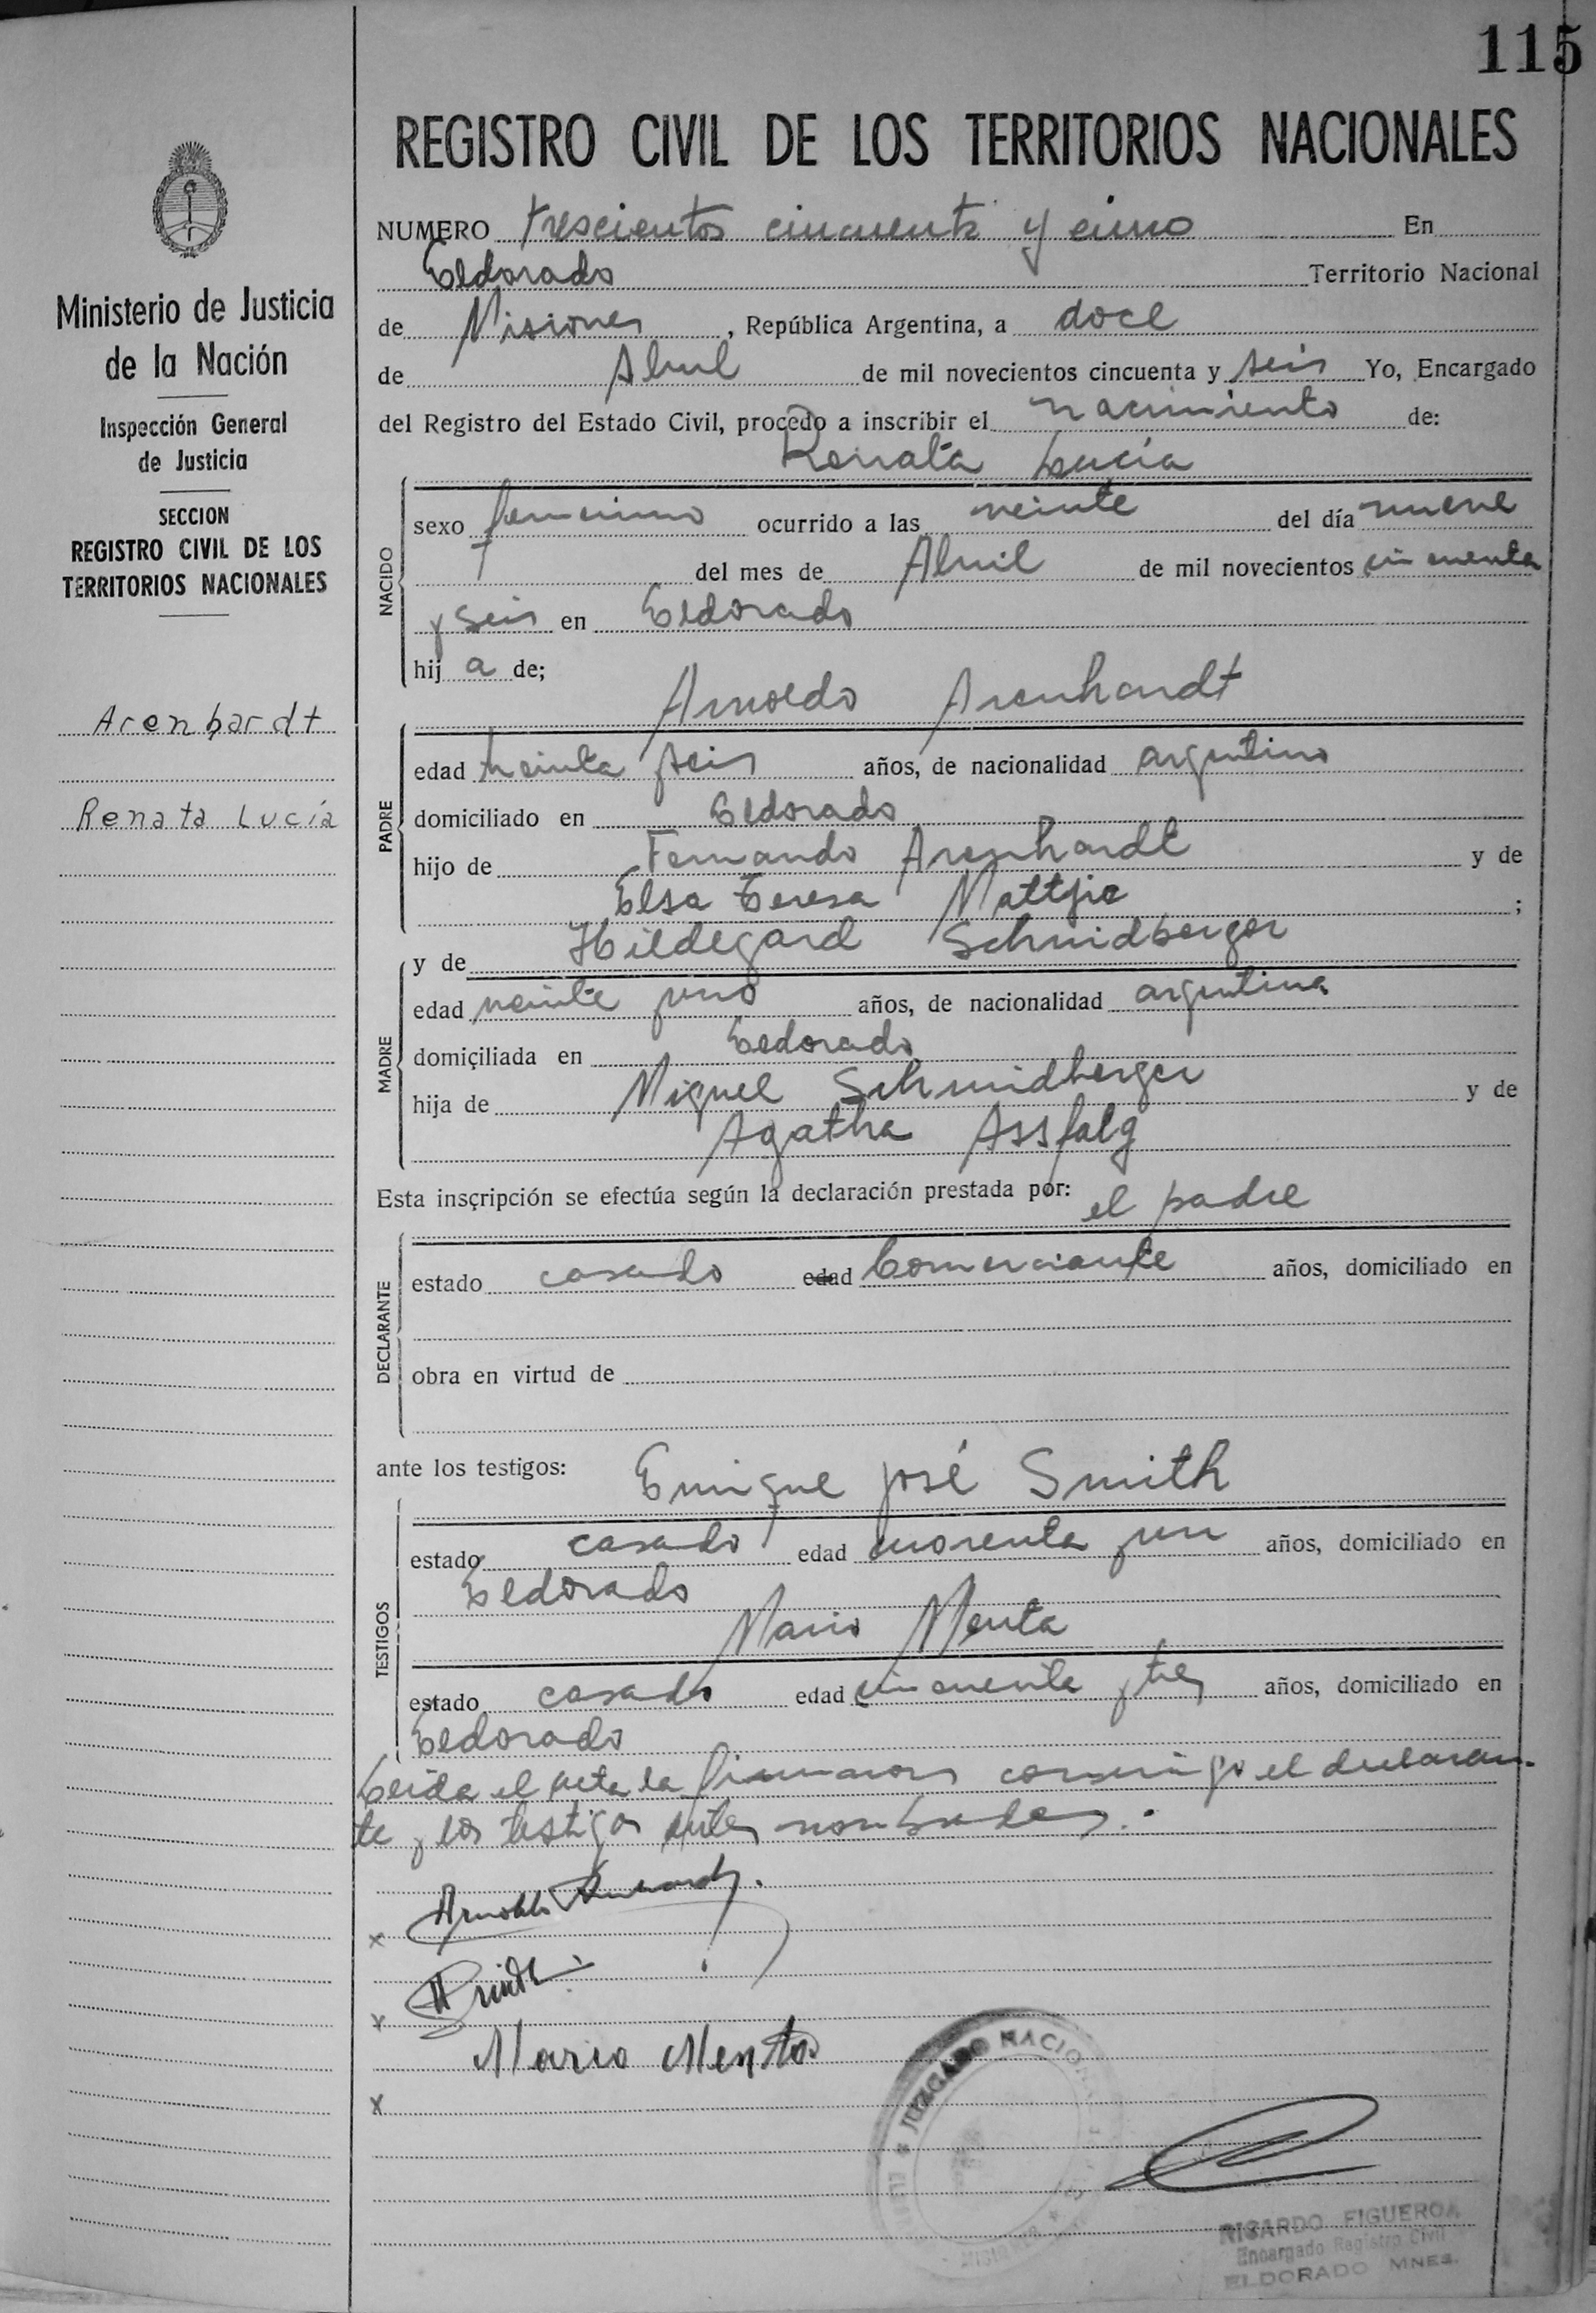 115
REGISTRO CIVIL DE LOS TERRITORIOS NACIONALES
Ministerio de Justicia
de la Nación
Inspección General
de Justicia
SECCION
REGISTRO CIVIL DE LOS
TERRITORIOS NACIONALES
Arenhardt
Renata Lucía
NUMERO trescientos cincuenta y cinco En
Eldorado Territorio Nacional
de Misiones, República Argentina, a doce
de Abril de mil novecientos cincuenta y seis Yo, Encargado
del Registro del Estado Civil, procedo a inscribir el nacimiento de:
Renata Lucía
NACIDO
sexo femenino ocurrido a las veinte del día nueve
del mes de Abril de mil novecientos cincuenta
y seis en Eldorado
hij a de;
Arnoldo Arenhardt
PADRE
edad treinta y seis años, de nacionalidad argentino
domiciliado en Eldorado
hijo de Fernando Arenhardt y de
Elsa Teresa Mattjie;
y de Hildegard Schmidberger
MADRE
edad veinte y uno años, de nacionalidad argentina
domiciliada en Eldorado
hija de Miguel Schmidberger y de
Agatha Assfalg
Esta inscripción se efectúa según la declaración prestada por: el padre
DECLARANTE
estado casado edad Comerciante años, domiciliado en
obra en virtud de
ante los testigos: Enrique José Smith
TESTIGOS
estado casado edad cuarenta y un años, domiciliado en
Eldorado
Mario Menta
estado casado edad cincuenta y tres años, domiciliado en
Eldorado
Leida el acta la firmaron conmigo el declaran-
te y los testigos antes nombrados.
x Arnoldo Arenhardt
x
Mario Menta
x
JUZGADO NACIONAL
MISIONES
RICARDO FIGUEROA
Encargado Registro Civil
ELDORADO MNES.